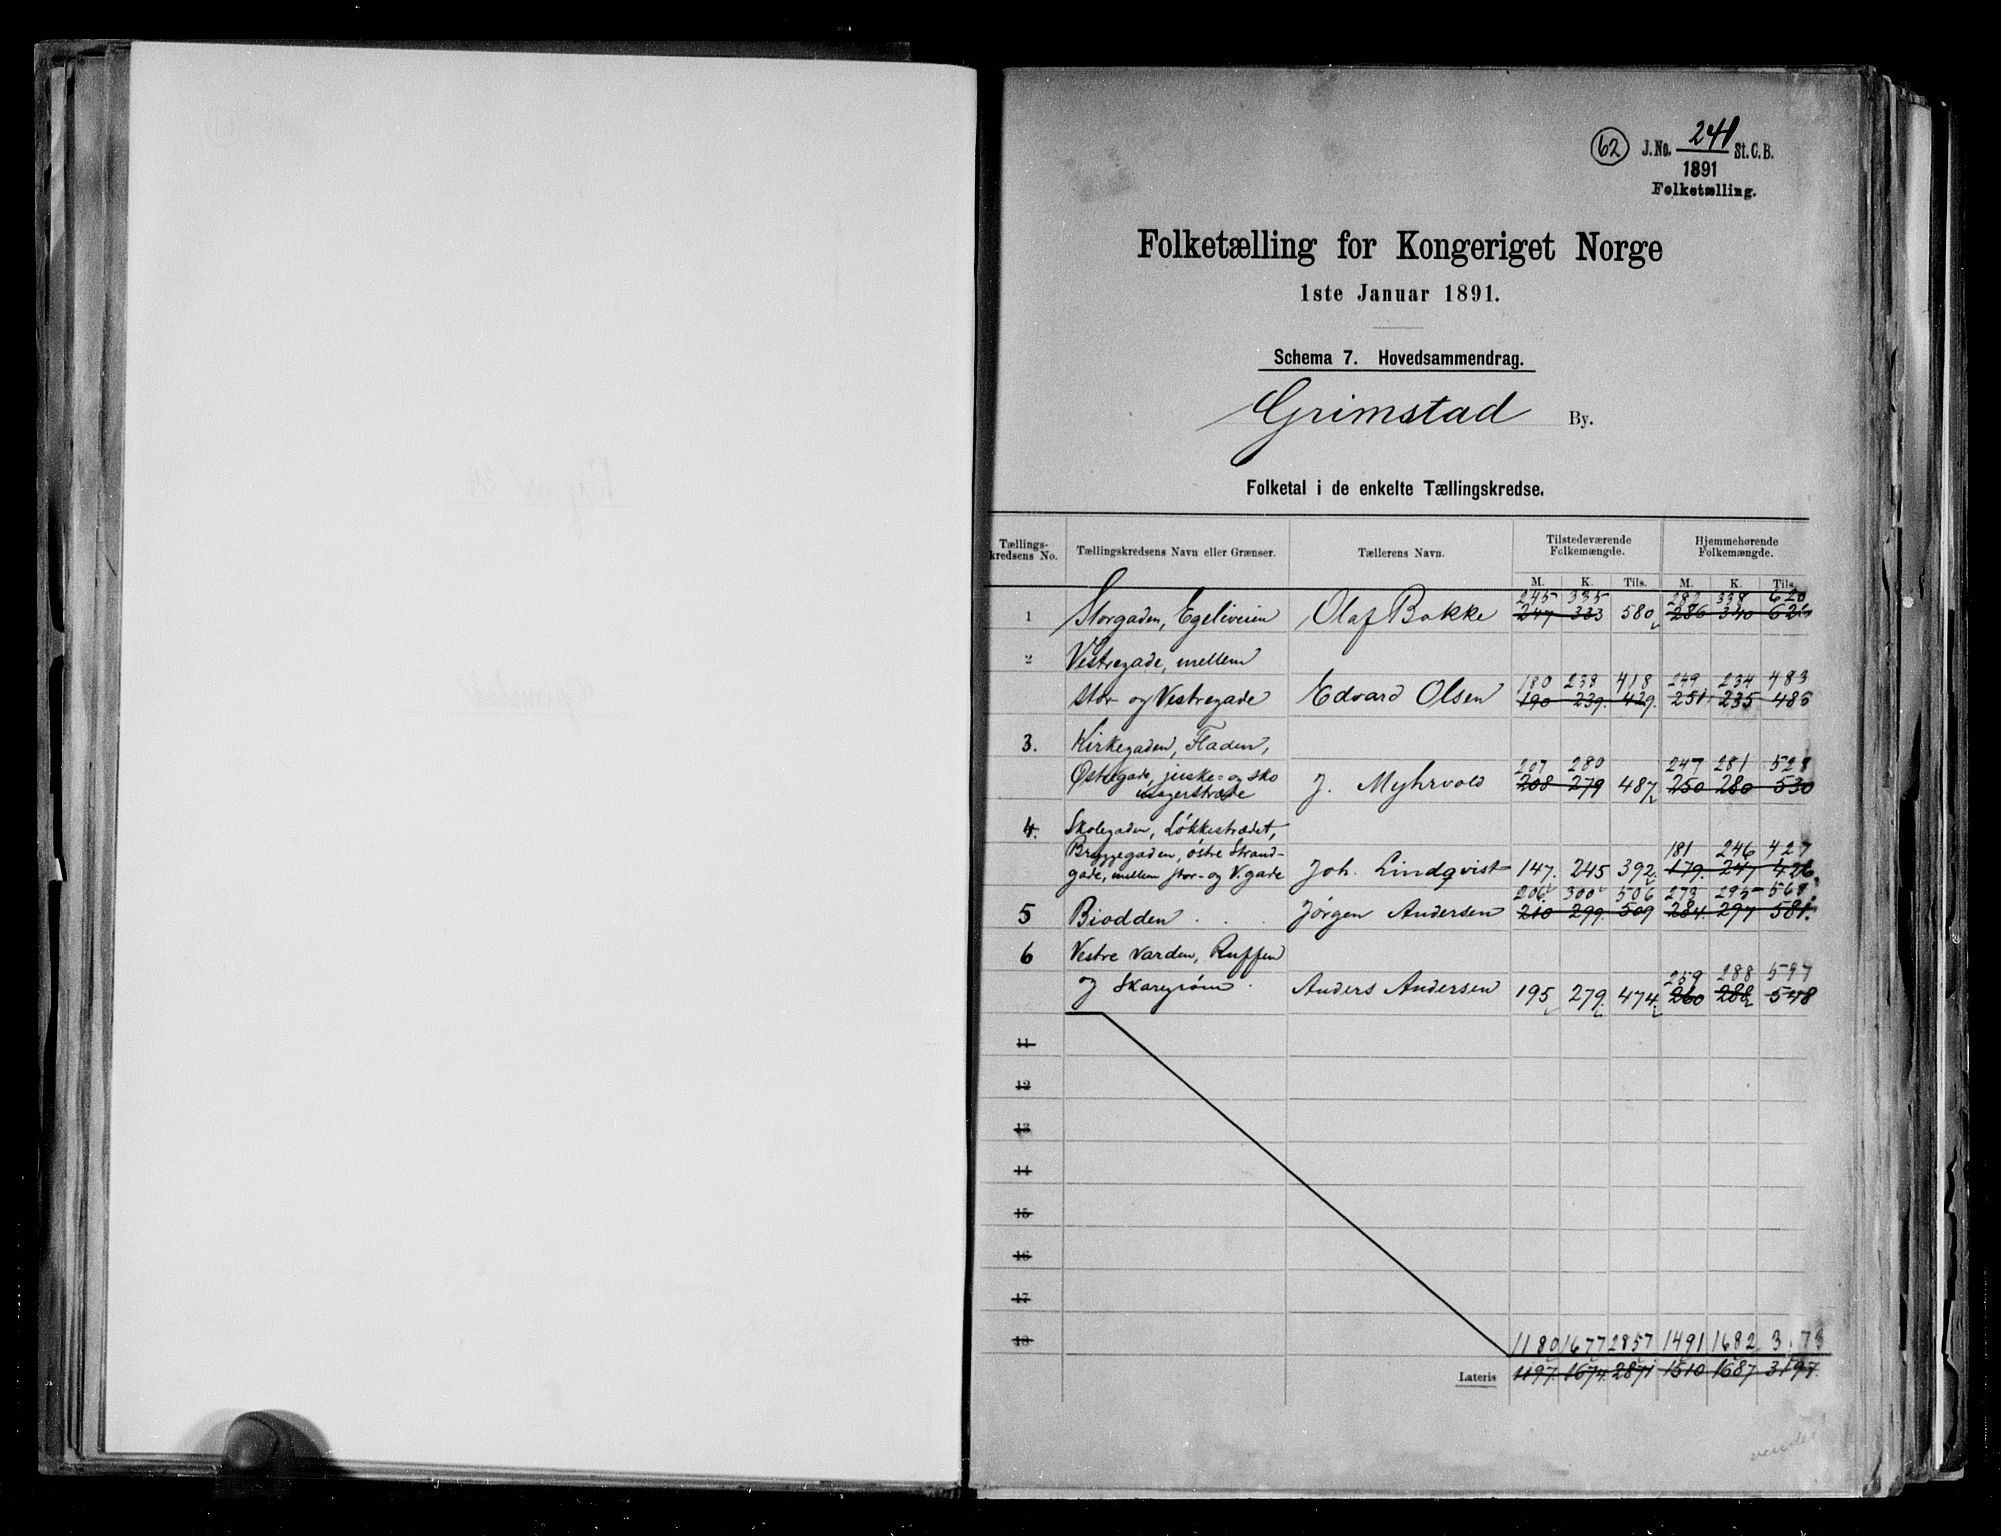 62 J. No. 241 St. C. B.
1891
Folketælling.
Folketælling for Kongeriget Norge
1ste Januar 1891.
Schema 7. Hovedsammendrag.
Grimstad By.
Folketal i de enkelte Tællingskredse.
Tællings- Tilstedeværende Hjemmehørende
kredsens No. Tællingskredsens Navn eller Grænser. Tællerens Navn. Folkemængde. Folkemængde.
M. K. Tils. M. K. Tils.
245 335 282 338 620
1 Storgaden, Egeliveien Olaf Bakke 247 333 580 286 340 626
2 Vestregade, mellem
180 238 418 249 234 483
Stor- og Vestregade Edvard Olsen 190 239. 429. 251 235 486
3. Kirkegaden, Fladen,
207 280 247 281 528
Østregade, juske- og sko J. Myhrvold 208 279 487 250 280 530
magerstræde
4. Skolegaden, Løkkestrædet,
181 246 427
Bryggegaden, østre Strand-
gade, mellem stor- og V.gade Joh. Lindqvist 147. 245 392. 179. 247 426.
206 300 506 273 295 568
5 Biodden . . Jørgen Andersen 210 299. 509 284. 297 581.
6 Vestre Varden, Ruffen
259 288 547
og Skaregrøm . Anders Andersen 195 279. 474. 260 288 548
11
12
13
14
15
16
17
18 1180 1677 2857 1491 1682 3173
Lateris 1197. 1674. 2871 1510 1687 3197.